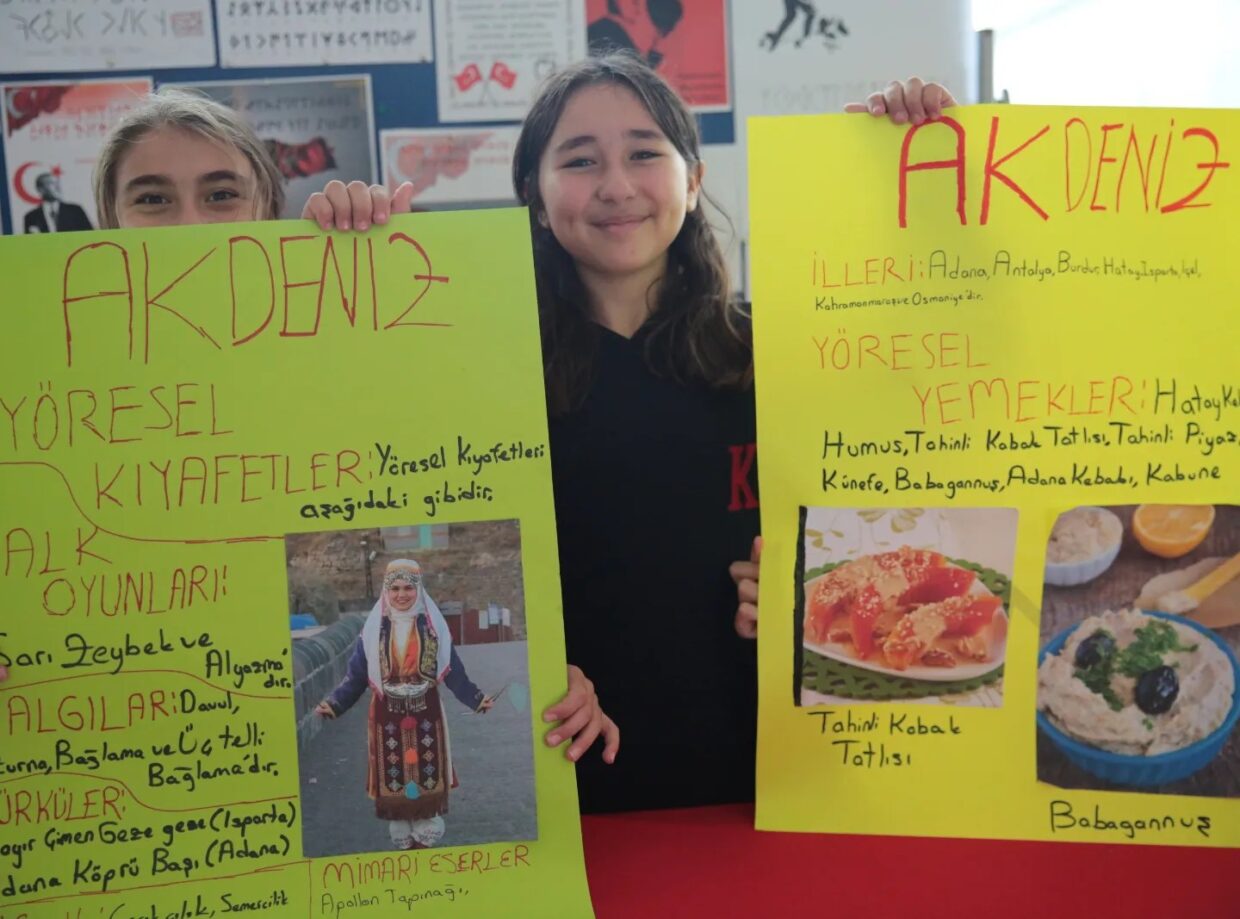 AKDENIZ
YÖRESEL
KIYAFETLER: Yöresel Kıyafetleri
aşağıdaki gibidir.
ALK
OYUNLARI:
Sarı Zeybek ve
Alyazma'
dır.
ALGILAR: Davul,
urna, Bağlama ve Üç telli
Bağlama'dır.
ÜRKÜLER:
ayır Çimen Geze geze (Isparta)
dana Köprü Başı (Adana)
Semercilik
MİMARİ ESERLER
Apollon Tapınağı,
AKDENİZ
İLLERİ: Adana, Antalya, Burdur, Hatay, Isparta, İçel,
Kahramanmaraş ve Osmaniye'dir.
YÖRESEL
YEMEKLER: Hatay Ke
Humus, Tahinli Kabak Tatlısı, Tahinli Piyaz,
Künefe, Babagannuş, Adana Kebabı, Kabune
Tahinli Kabak
Tatlısı
Babagannuş
K